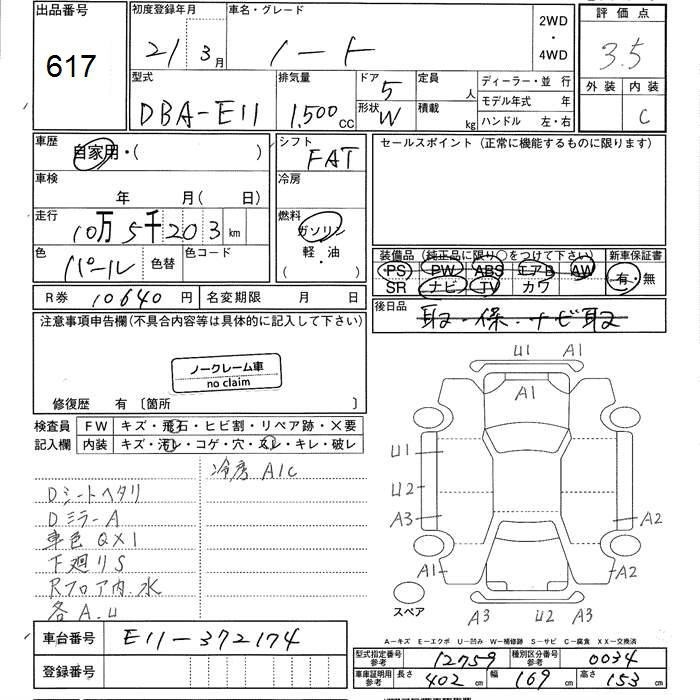 出品番号 617
初度登録年月 21年 3月
車名・グレード ノート
2WD・4WD
評価点 3.5
外装 内装 C
型式 DBA-E11
排気量 1,500cc
ドア 5
形状 W
定員 人
積載 kg
ディーラー・並行
モデル年式 年
ハンドル 左・右
車歴 自家用・( )
シフト FAT
セールスポイント (正常に機能するものに限ります)
車検 年 月( 日)
冷房
走行 10万5千203km
燃料 ガソリン 軽・油 ( )
色 パール 色替 色コード
装備品 (純正品に限り○をつけて下さい)
PS PW ABS エアB AW
SR ナビ TV カワ
新車保証書 有・無
R券 10640円 名変期限 月 日
後日品 取2-保.ナビ取2
注意事項申告欄(不具合内容等は具体的に記入して下さい)
ノークレーム車
no claim
修復歴 有 〔箇所 〕
検査員記入欄
FW キズ・飛石・ヒビ割・リペア跡・X要
内装 キズ・汚レ・コゲ・穴・スレ・キレ・破レ
冷房 A/C
Dシートヘタリ
Dミラー A
車色 QX1
下廻り S
Rフロア内.水
各 A.U
U1 A1
A1
U1
U2
A3 A2
A1 A2
スペア
A3 U2 A3
A-キズ E-エクボ U-凹み W-補修跡 S-サビ C-腐食 XX-交換済
車台番号 E11-372174
登録番号
型式指定番号 参考 12759 種別区分番号 参考 0034
車庫証明用 参考 長さ 402cm 幅 169cm 高さ 153cm